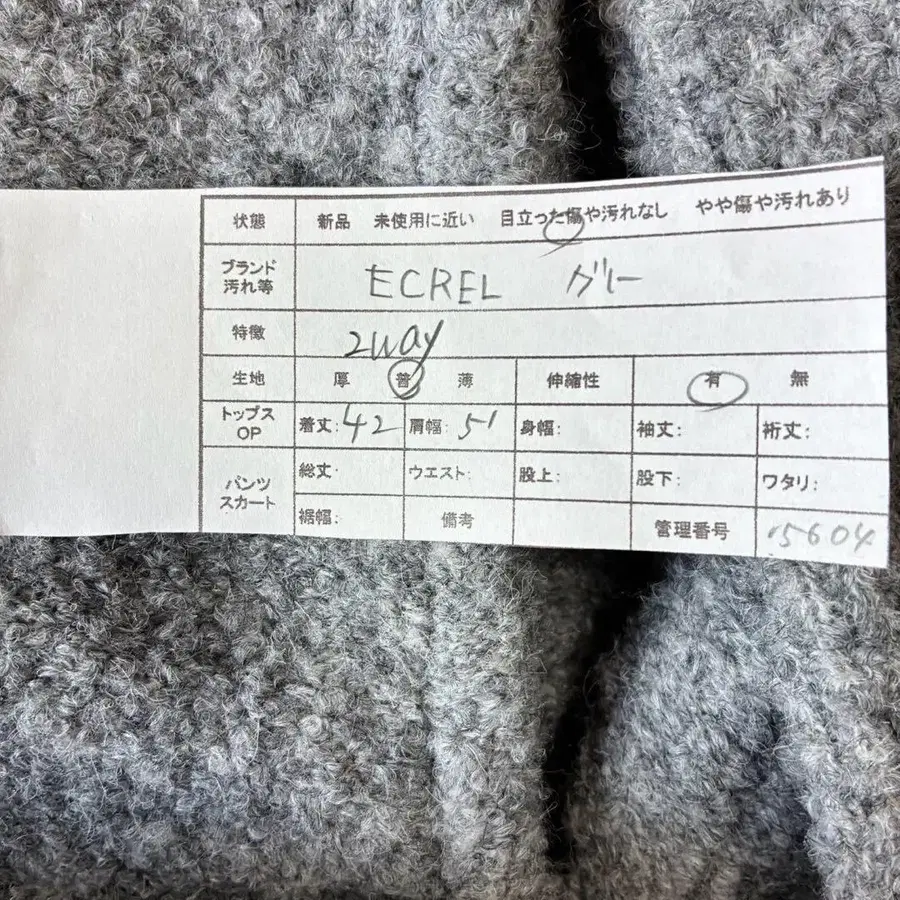 状態 新品 未使用に近い 目立った傷や汚れなし やや傷や汚れあり
ブランド 汚れ等 ECREL グレー
特徴 2way
生地 厚 普 薄 伸縮性 有 無
トップス OP 着丈:42 肩幅:51 身幅: 袖丈: 裄丈:
パンツ スカート 総丈: ウエスト: 股上: 股下: ワタリ:
裾幅: 備考 管理番号 5604